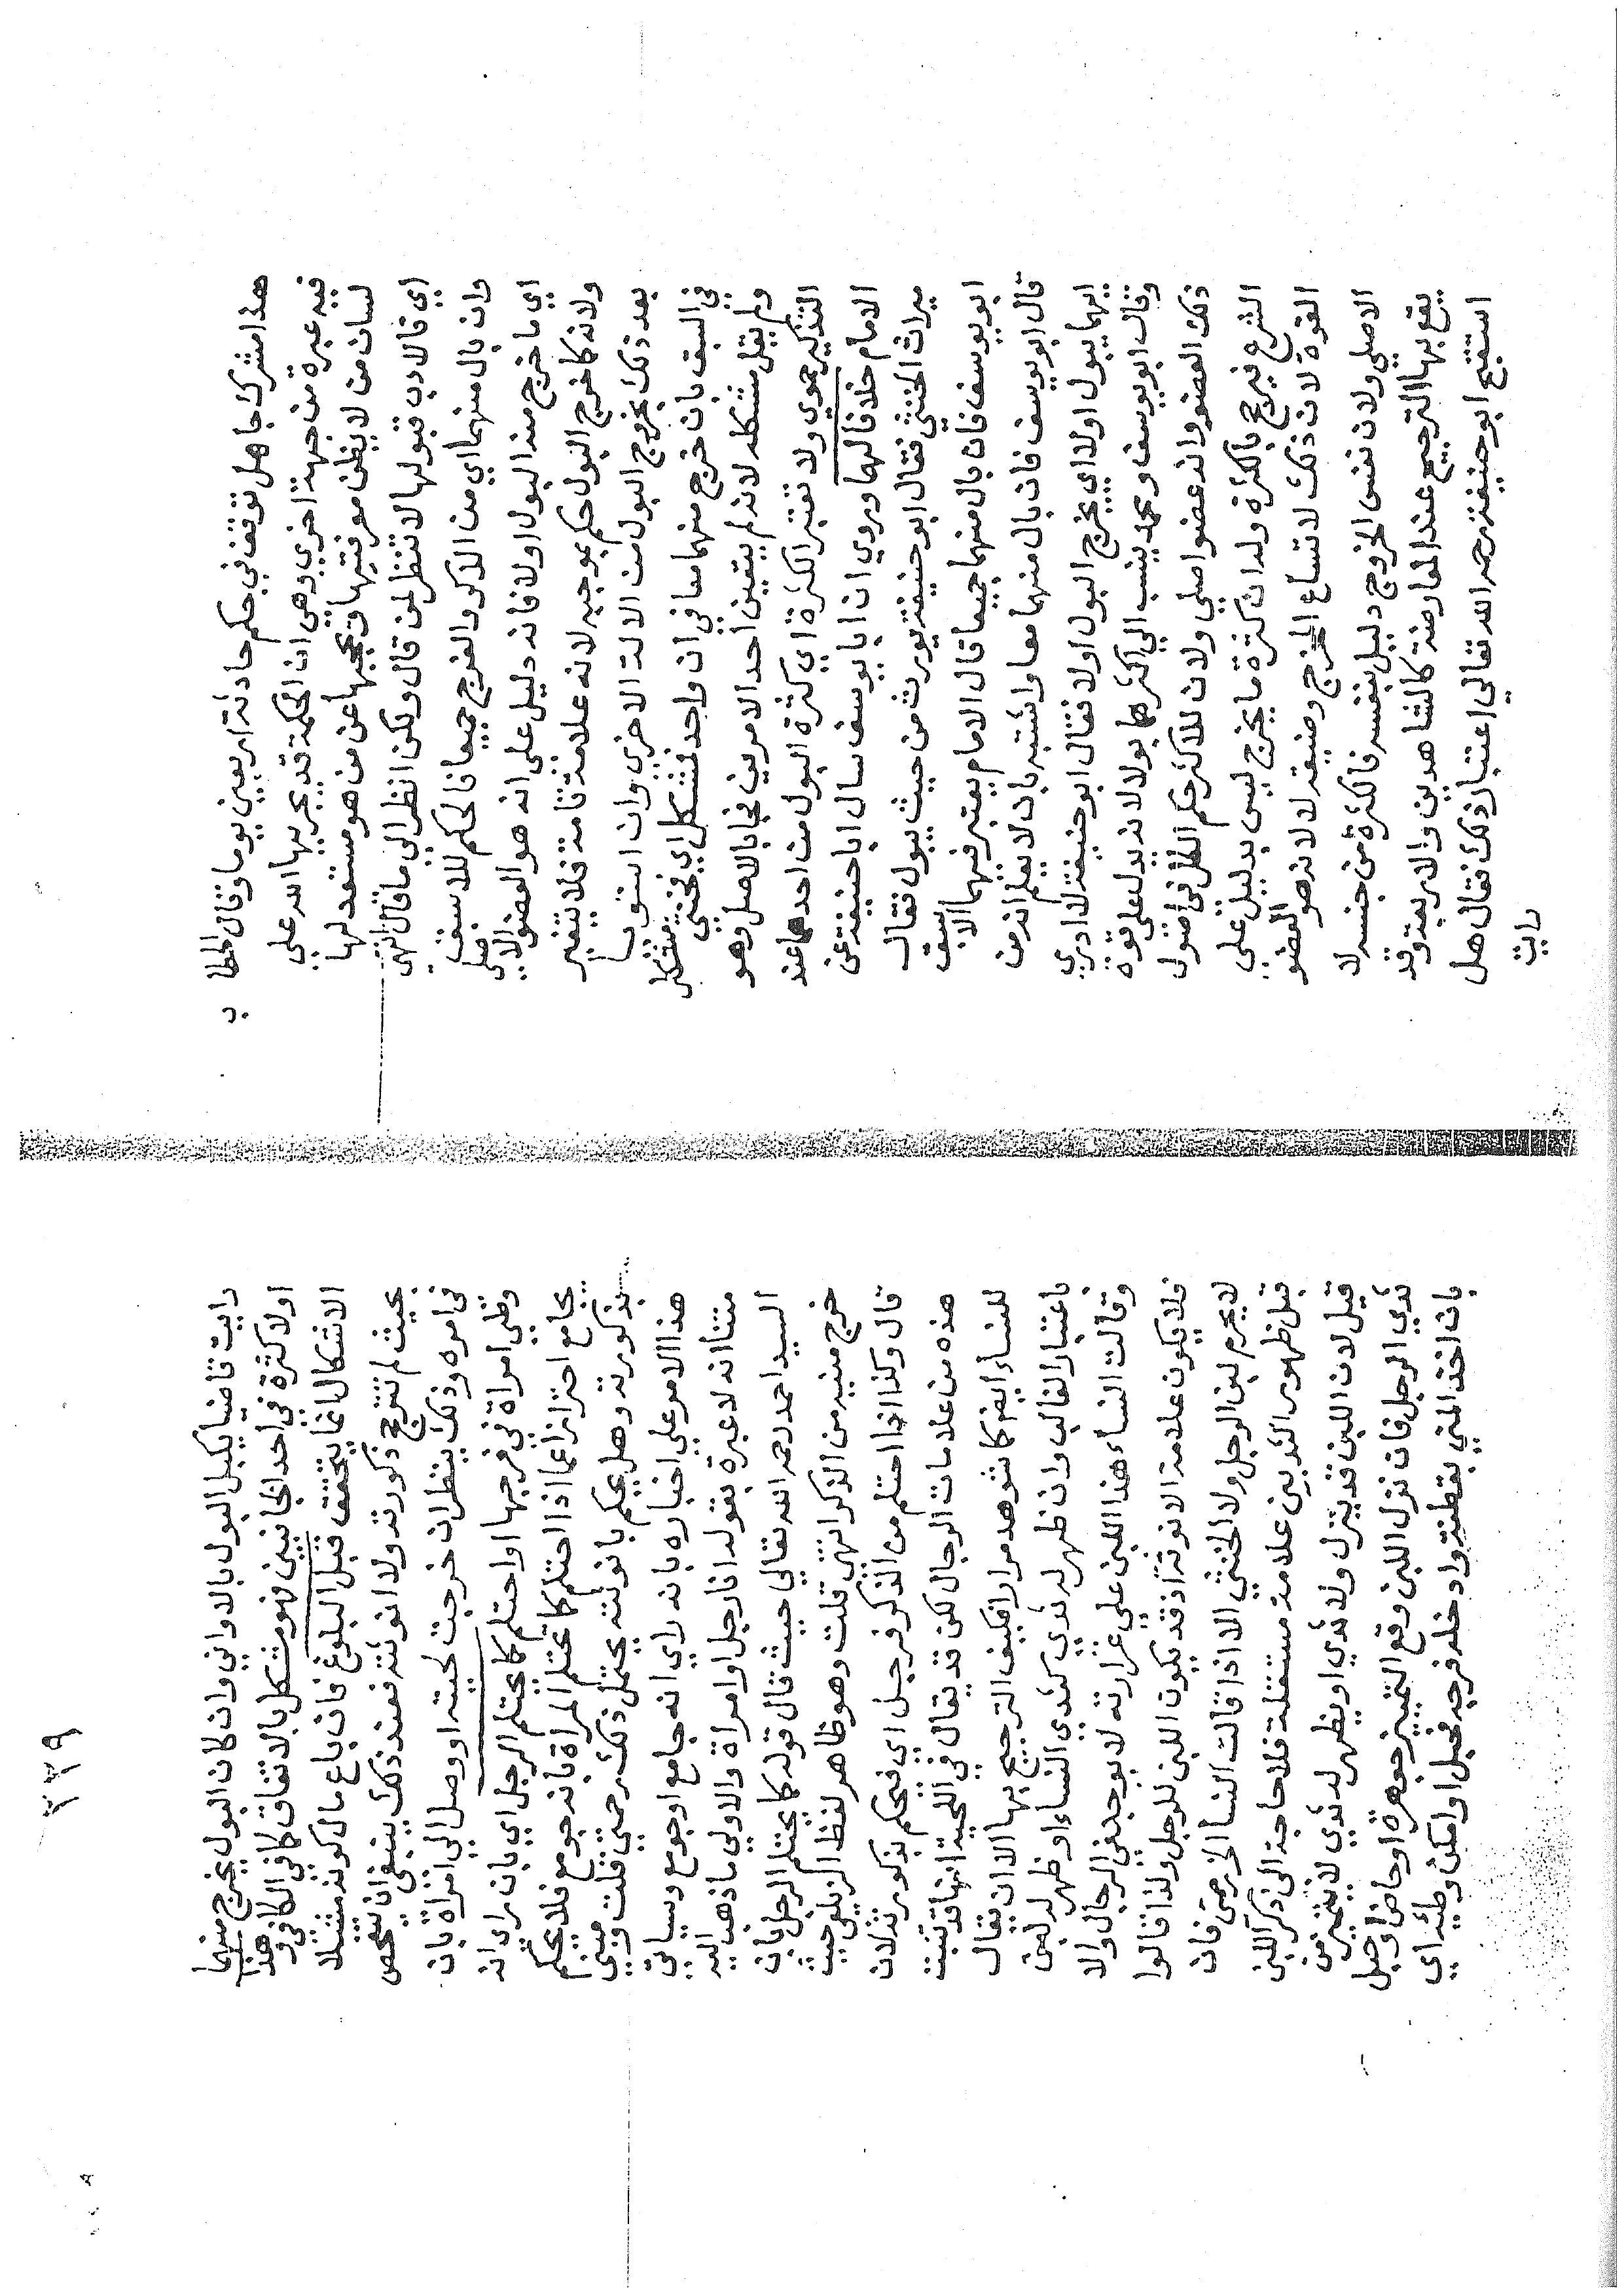 هذا مشرك جاهل توقف في حكم حادثة اربعين يوما وقال الخطاب
فيه عبرة من جهة اخري وهي ان الحكمة قد يجريها الله علي
لسان من لا يظن معرفتها ويحجبها عن من هو مستعد لها
اي قال الادب قبولها لا تنظر لمن قال ولكن انظر الي ما قال انتهى
وان بال منهما اي من الذكر والفرج جميعا فالحكم للاسبق
اي ما خرج منه البول اولا فانه دليل علي انه هو العضو الاصلي
ولانه كما خرج البول حكم بموجبه لانه علامة تامة فلا يتغير
بعد ذلك بخروج البول من الالة الاخري وان استويا
في السبق بان خرج منهما معا في ان واحد فمشكل اي فخنثي مشكل
ولم يقل مشكله لانه لم يتعين احد الامرين فجا بالاصل وهو
التذكير حموي ولا تعتبر الكثرة اي كثرة البول من احدهما عند
الامام خلافا لهما وروي ان ابا يوسف سال ابا حنيفة عن
ميراث الخنثي فقال ابو حنيفة يورث من حيث يبول فقال
ابو يوسف فان بال منهما جميعا قال الامام يعتبر فيهما الاسبق
قال ابو يوسف فان بال منهما معا واشتبه بان لا يعلم انه من
ايهما يبول اولا اي يخرج البول اولا فقال ابو حنيفة لا ادري
وقال ابو يوسف ومحمد ينسب الي اكثرهما بولا لانه يدل علي قوة
ذلك العضو وانه عضو اصلي ولان للاكثر حكم الكل في اصول
الشرع فيرجح بالكثرة وله ان كثرة ما يخرج ليس بدليل علي
القوة لان ذلك لاتساع المخرج وضيقه لا لانه هو العضو
الاصلي ولان نفس الخروج دليل بنفسه فالكثرة من جنسه لا
يقع بها الترجيح عند المعارضة كالشاهدين والاربعة وقد
استقبح ابو حنيفة رحمه الله تعالي اعتبار ذلك فقال هل
رايت
٢٢٩
رايت قاضيا يكيل البول بالاواني وان كان البول يخرج منهما
اولا كثرة في احد الجانبين فهو مشكل بالاتفاق كما في الكافي وهذا
الاشكال انما يتحقق قبل البلوغ فان باع مال كونه مشكلا
بحيث لم تترجح ذكورته ولا انوثته فعند ذلك ينبغي ان يتفحص
في امره وذلك ينظر ان خرجت لحيته او وصل الي امراة بان
وطي امراة في فرجها او احتلم كما يحتلم الرجل اي بان راي انه
يجامع احترازا عما اذا احتلم كما تحتلم المراة بانه جومع فلا يحكم
بذكورته وهل يحكم بانوثته يحتمل ذلك رحمتي قلت ومبني
هذا الامر علي اخباره بانه راي انه جامع او جومع وسياتي
متنا انه لا عبرة بقوله انا رجل او امراة والاولي ما ذهب اليه
السيد احمد رحمه الله تعالي حيث قال قوله كما يحتلم الرجل بان
خرج منيه من الذكر انتهى قلت وهو ظاهر لفظ الزيلعي حيث
قال وكذا اذا احتلم من الذكر فرجل اي فيحكم بذكورته لان
هذه من علامات الرجال لكن قد يقال في اللحية انها قد تنبت
للنساء ايضا كما شوهد مرارا فكيف الترجيح بها الا ان يقال
باعتبار الغالب وان ظهر له ثدي كثدي النساء او ظهر له لبن
وقالت النساء هذا اللبن علي غزارته لا يوجد في الرجال والا
فلا يكون علامة الانوثة اذ قد يكون اللبن للرجل ولذا قالوا
لا يحرم لبن الرجل ولا الخنثي الا اذا قالت النسا الخ رحمتي فان
قبل ظهور الثديين علامة مستقلة فلا حاجة الى ذكر اللبن
قيل لان اللبن قد ينزل ولا ثدي او يظهر له ثدي لا يتميز من
ثدي الرجل فان نزل اللبن وقع التميز جوهرة او حاض او حبل
بان اخذ المني بقطنة وادخله فرجه فحبل او امكن وطئه اي